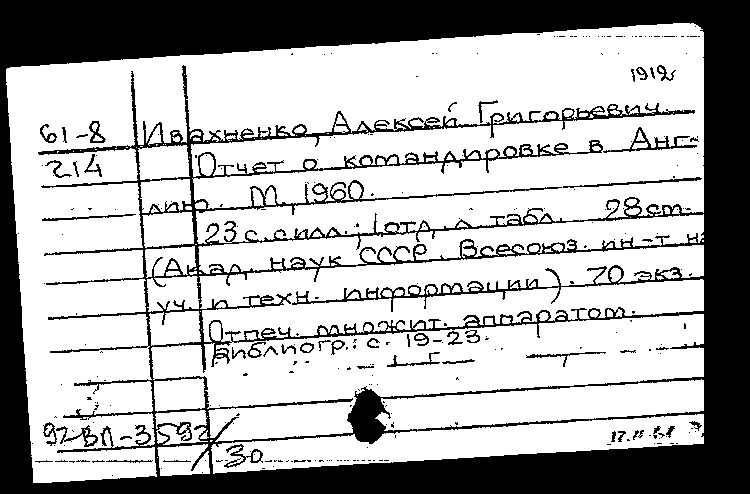 1912г
61-8 Ивахненко, Алексей Григорьевич.
214 Отчет о командировке в Анг-
лию. М., 1960.
23 с. с илл.; 1 отд. л. табл. 28 см.
(Акад. наук СССР. Всесоюз. ин-т на
уч. и техн. информации). 70 экз.
Отпеч. множит. аппаратом.
Библиогр.: с. 19-23.
92-ВЛ-3592/30